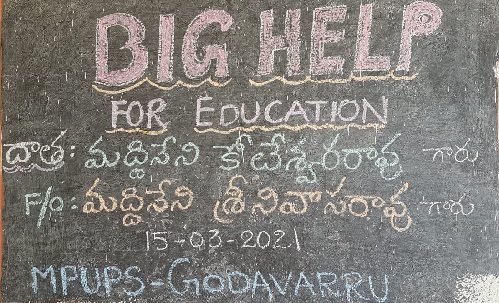 BIG HELP
FOR EDUCATION
దాత: మద్దినేని కోటేశ్వరరావు గారు
F/o: మద్దినేని శ్రీనివాసరావు గారు
15-03-2021
MPUPS-GODAVARRU